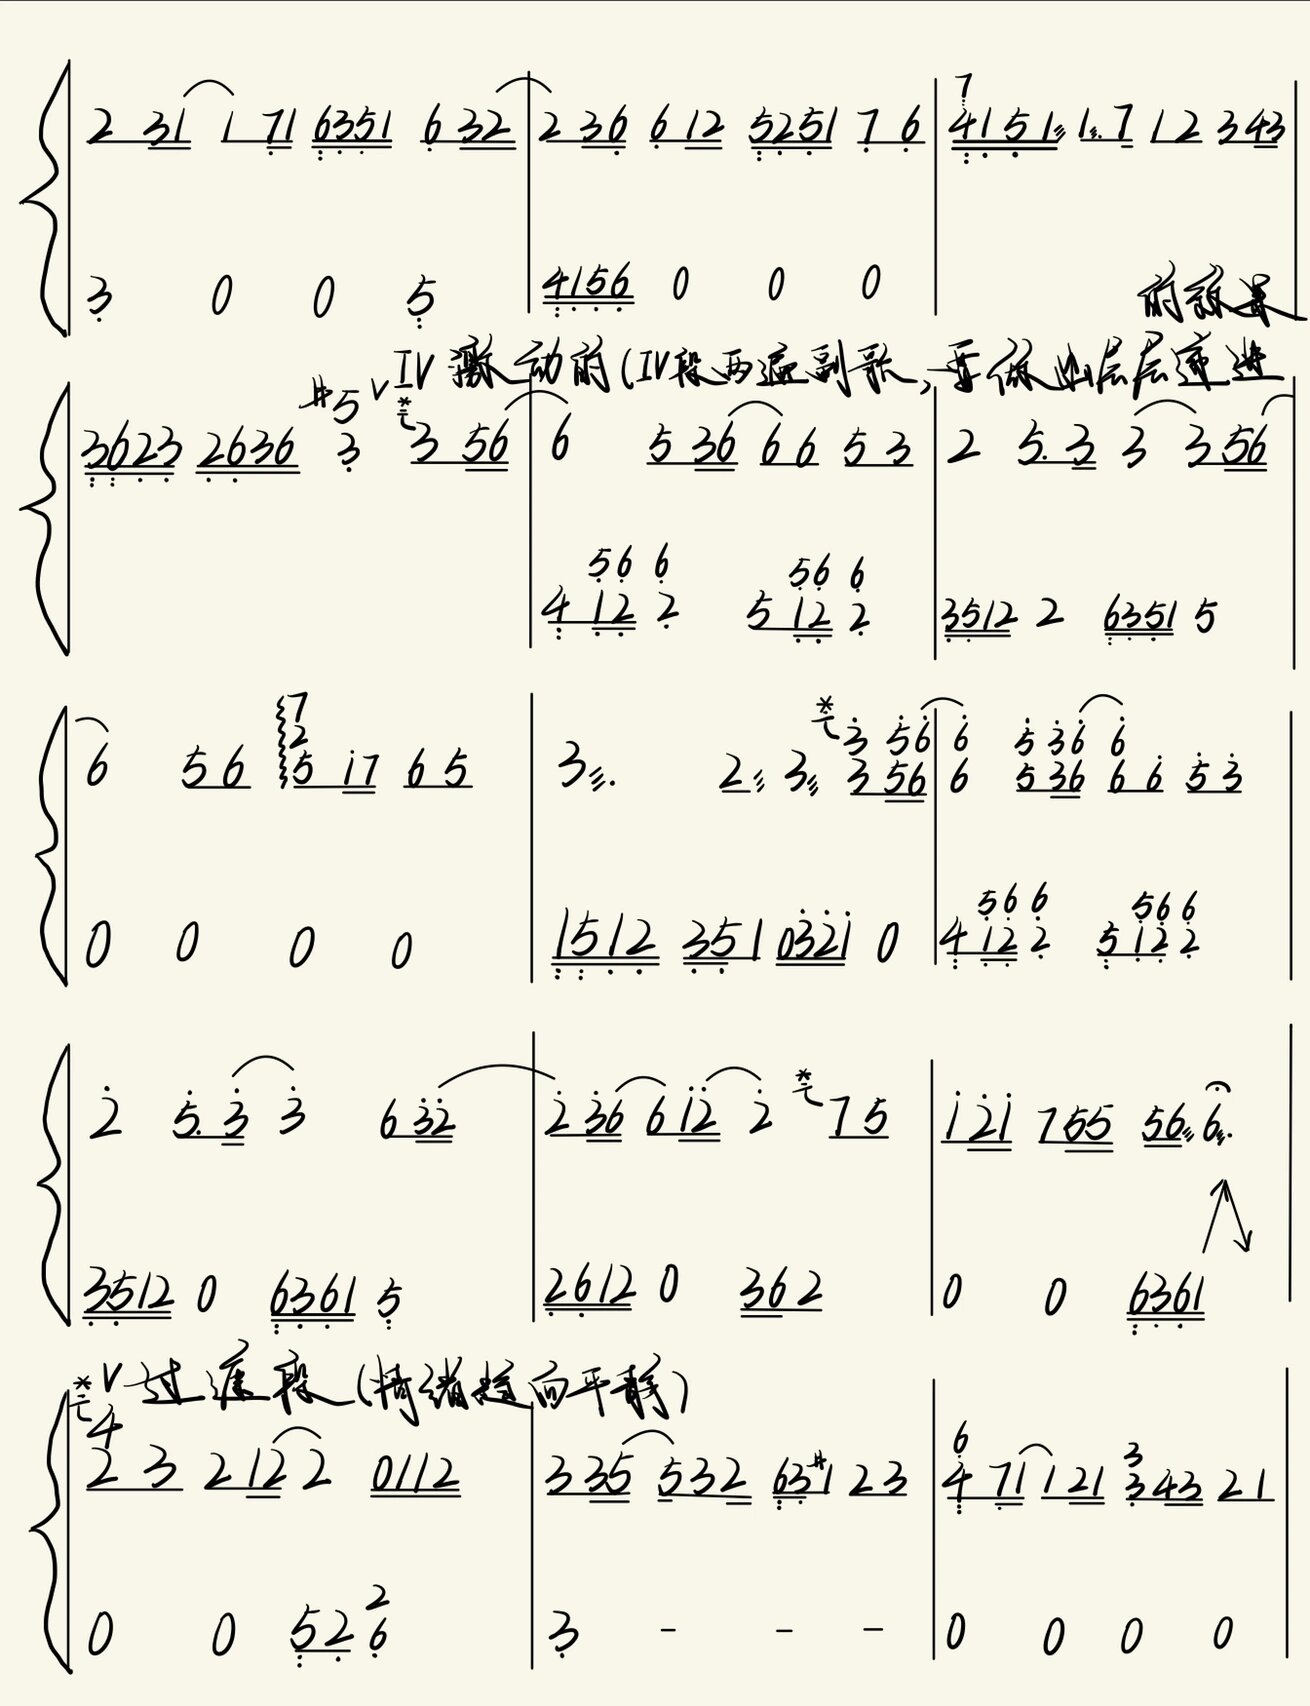 2 31 1 71 6351 6 32 2 36 6 12 5251 7 6 7 4151 1. 7 1 2 3 43
3 0 0 5 4156 0 0 0
的效果
IV 激动的(IV段两遍副歌,要做出层层递进
#5 V
3623 2636 3 3 56 6 5 36 6 6 5 3 2 5. 3 3 3 56
56 6 56 6
4 12 2 5 12 2 3512 2 6351 5
7
2
3 56 6 5 36 6
6 5 6 5 17 6 5 3. 2 3 3 56 6 5 36 6 6 5 3
56 6 56 6
0 0 0 0 1512 351 0321 0 4 12 2 5 12 2
2 5. 3 3 6 32 2 36 6 12 2 7 5 1 21 7 55 56 6.
3512 0 6361 5 2612 0 36 2 0 0 6361
V 过渡段(情绪趋向平静)
4 6 3
2 3 2 12 2 0112 3 35 5 3 2 63#1 2 3 4 71 1 21 3 43 2 1
2
0 0 52 6 3 - - - 0 0 0 0